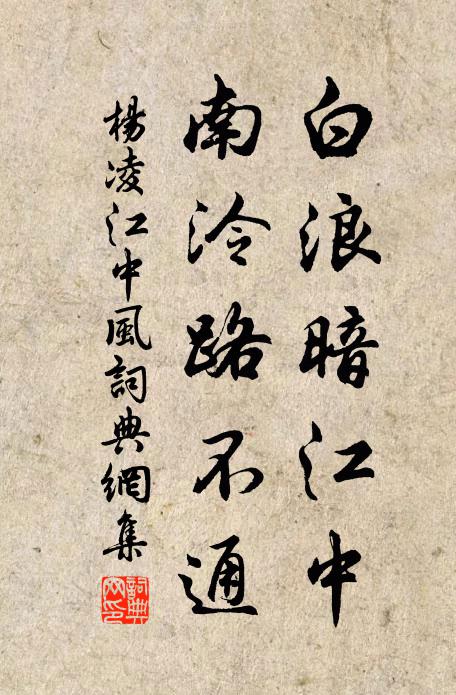 白浪暗江中
南泠路不通
楊凌江中風詞典網集
詞典
网印